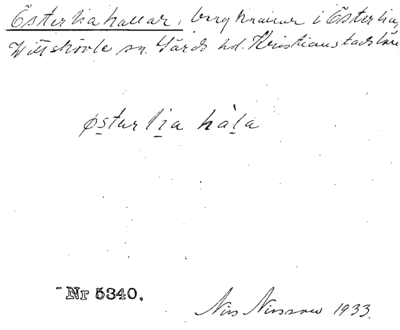 Österliahallar, bergknallar i Österlia,
Vittskövle sn. Gärds hd. Kristianstads län
østurlia hàla
Nr 5340.
Nils Nilsson 1933.